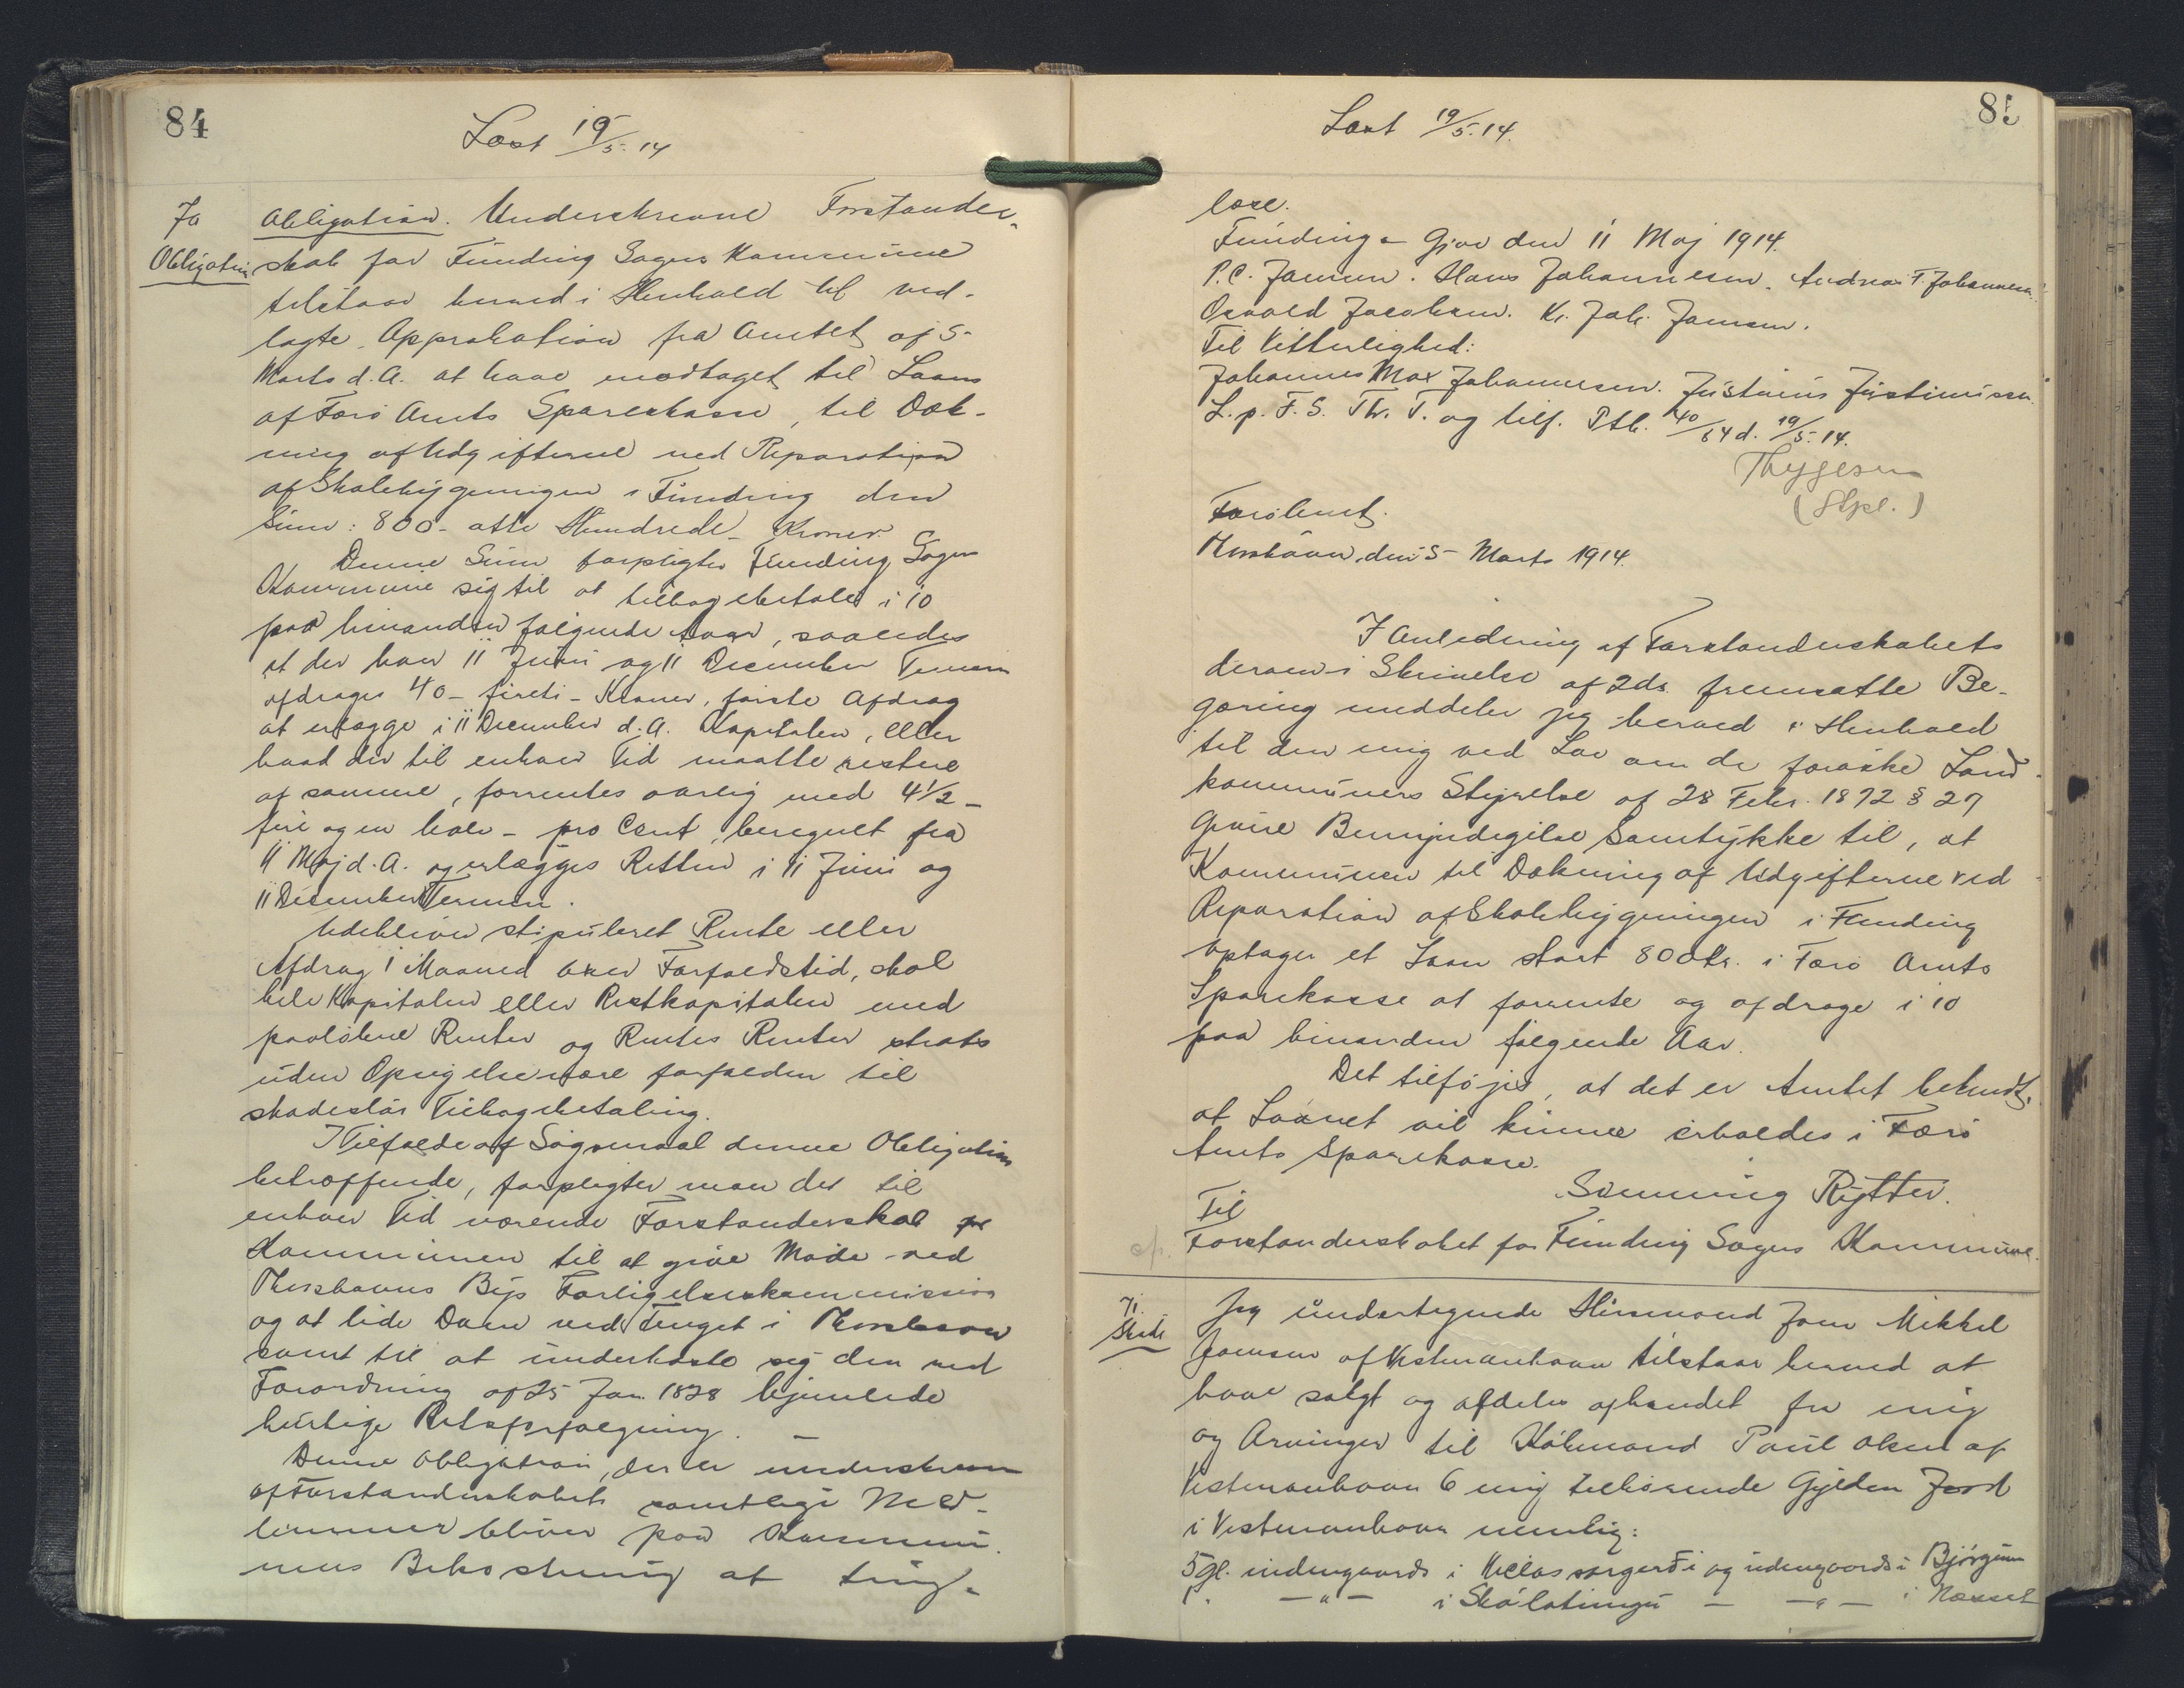 84
Læst 19/5. 14
70
Obligation
Obligation. Underskrevne Forstander-
skab for Funding Sogns Kommune
tilstaar herved i Henhold til ved-
lagte Approbation fra Amtet af 5-
Marts d.A. at have modtaget til Laans
af Færø Amts Sparekasse, til Dæk-
ning af Udgifterne ved Reparation
af Skolebygningen i Funding den
Sum: 800- otte Hundrede- Kroner.
Denne Sum forpligter Funding Sogns
Kommune sig til at tilbagebetale i 10
paa hinanden følgende Aar, saaledes
at der hver 11 Juni og 11 December Termin
afdrages 40- fireti- Kroner, første Afdrag
at erlægge i 11 December d.A. Kapitalen, eller
hvad der til enhver Tid maatte restere
af samme, forrentes aarlig med 4½-
fire og en halv- pro Cent, beregnet fra
11 Maj d.A. og erlægges Retten i 11 Juni og
11 December Termin.
Udebliver stipuleret Rente eller
Afdrag 1 Maaned over Forfaldstid, skal
hele Kapitalen eller Restkapitalen med
paaløbne Renter og Rentes Renter straks
uden Opsigelse være forfalden til
skadesløs Tilbagebetaling.
I Tilfælde af Søgsmaal denne Obligation
betræffende, forpligter man det til
enhver Tid værende Forstanderskab for
Kommunen til at give Møde ved
Thorshavns Bys Forligelseskommission
og at lide Dom ved Tinget i Thorshavn
samt til at underkaste sig den ved
Forordning af 25 Jan. 1828 hjemlede
hurtige Retsforfølgning. -
Denne Obligation, der er underskreven
af Forstanderskabets samtlige Med-
lemmer bliver paa Kommu-
nens Bekostning at ting-
85
Læst 19/5. 14.
læse.
Funding - Gjov den 11 Maj 1914.
P.C. Joensen. Hans Johannesen. Andreas F. Johannesen.
Osvald Jacobsen. Kr. Joh. Joensen.
Til Vitterlighed:
Johannes Max Johannesen. Justinus Justinussen.
L. p. F. S. Th. T. og tilf. Ptb. 40/64 d. 19/5. 14.
Thygesen
(Stpl.)
Færø Amt.
Thorshavn, den 5- Marts 1914.
I Anledning af Forstanderskabets
derom i Skrivelse af 2ds. fremsatte Be-
gæring meddeler jeg herved i Henhold
til den mig ved Lov om de færøske Land-
kommuners Styrelse af 28 Febr. 1872 § 27
givne Bemyndigelse Samtykke til, at
Kommunen til Dækning af Udgifterne ved
Reparation af Skolebygningen i Funding
optager et Laan stort 800Kr. i Færø Amts
Sparekasse at forrente og afdrage i 10
paa hinanden følgende Aar.
Det tilføjes, at det er Amtet bekendt,
at Laanet vil kunne erholdes i Færø
Amts Sparekasse.
Svenning Rytter.
Til
Forstanderskabet for Funding Sogns Kommune.
71.
Skøde
Jeg undertegnede Husmand Joen Mikkel
Joensen af Vestmanhavn tilstaar herved at
have solgt og aldeles afhændet fra mig
og Arvinger til Købmand Poul Olsen af
Vestmanhavn 6 mig tilhørende Gylden Jord
i Vestmanhavn nemlig:
5 gl. indengaards i og udengaards i
1 . - " - i Skálatungu - - " - i Næsset